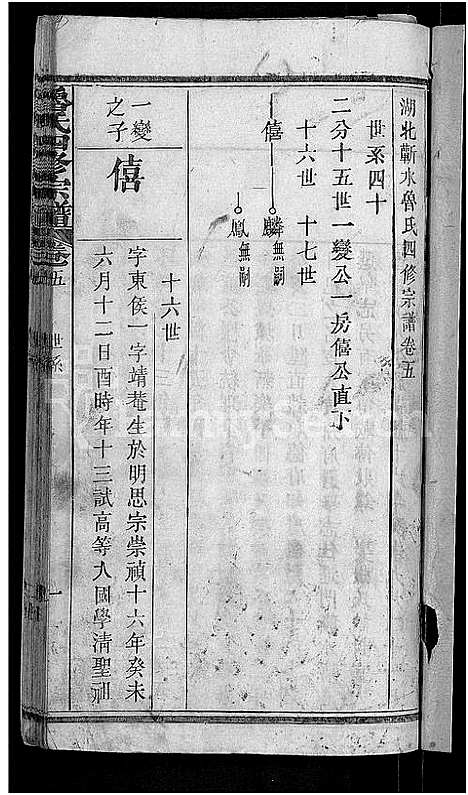 湖北蘄水魯氏四修宗譜卷五
世系四十
二分十五世一變公一房僖公直下
十六世 十七世
僖 麟無嗣
鳳無嗣
十六世
一變之子
僖
字東侯一字靖菴生於明思宗崇禎十六年癸未
六月十二日酉時年十三試高等入國學清聖祖
魯氏四修宗譜 卷五 世系 一